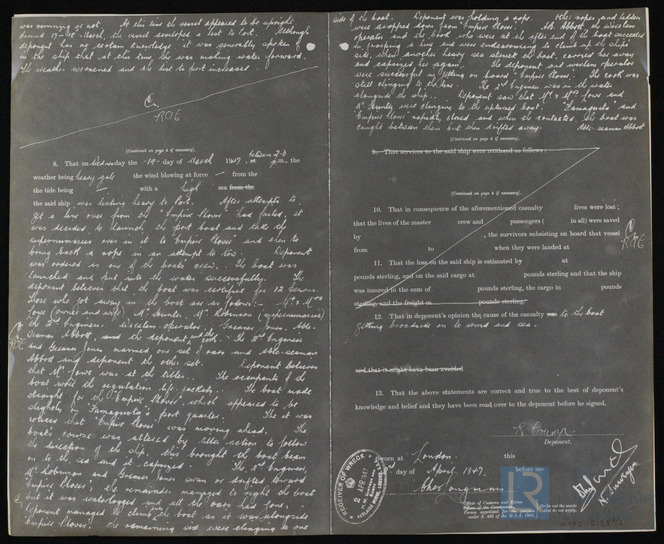 was running or not. At this time the vessel appeared to be upright
around 17th-18th March, the vessel developed a list to port. Although
deponent has no certain knowledge, it was generally spoken of
in the ship that at this time she was making water forward.
The weather worsened and the list to port increased
(Continued on page 4 if necessary).
8. That on Wednesday the 19 day of March 1947, at between 2-3 p.m., the
weather being heavy gale the wind blowing at force — from the
the tide being — with a high sea from the
the said ship was listing heavy to Port. After attempts to
get a line over from the "Empire Plover" had failed, it
was decided to launch the port boat and take the
supernumeraries over in it to "Empire Plover" and also to
bring back a rope in an attempt to tow. Deponent
was ordered as one of the boat's crew. The boat was
launched and put into the water successfully. The
deponent believes that the boat was certified for 12 persons.
Those who got away in the boat are as follows:- Mr & Mrs
Fows (owner and wife) Mr Hunter, Mr Robinson (supernumeraries)
the 2nd Engineer. Wireless operator, Greaser Jones, Able-
Seaman Abbott, and the deponent and the cook. The 2nd Engineer
and Greaser Jones manned one set of oars and Able-seaman
Abbott and deponent the other set. Deponent believes
that Mr Fows was at the tiller. The occupants of the
boat wore the regulation life jackets. The boat made
straight for the "Empire Plover" which appeared to be
slightly on "Famagusta's" port quarter. Then it was
noticed that Empire Plover was moving ahead. The
boat's course was altered by tiller action to follow
the direction of the ship, this brought the boat beam
on to the sea and it capsized. The 2nd Engineer,
Mr Robinson and Greaser Jones swam or drifted toward
Empire Plover; the remainder managed to right the boat
but it was waterlogged and all the oars had gone.
Deponent managed to climb the boat as it was alongside
Empire Plover; the remaining six were clinging to one
side of the boat. Deponent was holding a rope. Other ropes and ladders
were dropped down from "Empire Plover". Abbott, the wireless
operator and the cook who were at the after end of the boat succeeded
in grasping a line and were endeavouring to climb up the ship's
side, when another heavy sea struck the boat, carried her away
and capsized her again. The deponent and wireless operator
were successful in getting on board "Empire Plover". The cook was
still clinging to the line. The 2nd Engineer was in the water
alongside the ship. Deponent saw that Mr & Mrs Fows and
Mr Hunter were clinging to the upturned boat. "Famagusta" and
Empire Plover rapidly closed and when she contacted, the boat was
caught between them but then drifted away. Able-seaman Abbott
(Continued on page 4 if necessary).
9. That services to the said ship were rendered as follows:
(Continued on page 4 if necessary).
10. That in consequence of the aforementioned casualty lives were lost;
that the lives of the master crew and passengers ( in all) were saved
by , the survivors subsisting on board that vessel
from to when they were landed at
11. That the loss on the said ship is estimated by at
pounds sterling, and on the said cargo at pounds sterling and that the ship
was insured in the sum of pounds sterling, the cargo in pounds
sterling, and the freight in pounds sterling.
12. That in deponent's opinion the cause of the casualty was to the boat
getting broadside on to wind and sea.
and that it might have been avoided
13. That the above statements are correct and true to the best of deponent's
knowledge and belief and they have been read over to the deponent before he signed.
Deponent.
Sworn at London this
day of April 1947. before me
RECEIVER OF WRECK
2 APR 1947
LR